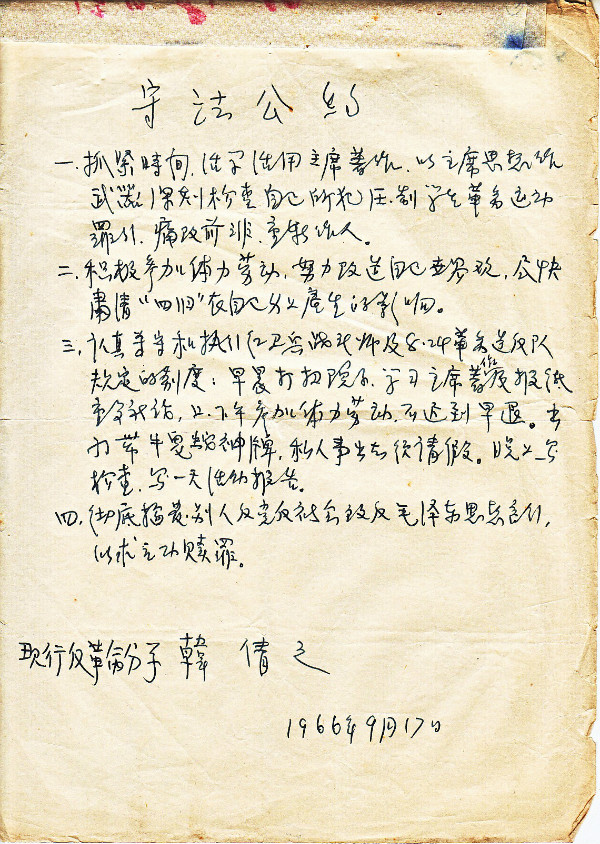 守法公约
一. 抓紧時间, 活学活用主席著作, 以主席思想作
武器, 深刻检查自己所犯压制学生革命运动
罪行, 痛改前非, 重新作人。
二. 积极参加体力劳动, 努力改造自己世界观, 尽快
肃清“四旧”在自己身上產生的影响。
三. 认真遵守和执行红卫兵战斗师及8.24革命造反队
规定的制度: 早晨打扫院子, 学习主席著作及报纸
重要社论, 上.下午参加体力劳动, 不迟到早退。出
门带牛鬼蛇神牌, 私人事出去须请假。晚上写
检查, 写一天活动报告。
四. 彻底揭发别人反党反社会主义反毛泽东思想言行,
以求立功赎罪。
现行反革命分子 韓倩之
1966年9月17日